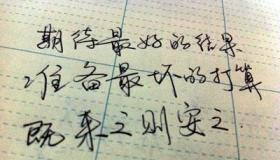 期待最好的结果
准备最坏的打算
既来之则安之